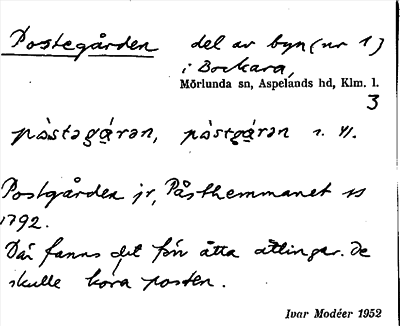 Postegården del av byn (nr 1)
i Bockara,
Mörlunda sn, Aspelands hd, Klm. l.
3
påstagáran, påstgáran
Postgården jr, Påsthemmanet
1792.
Där fanns det förr åtta ättlingar. De
skulle köra posten.
Ivar Modéer 1952